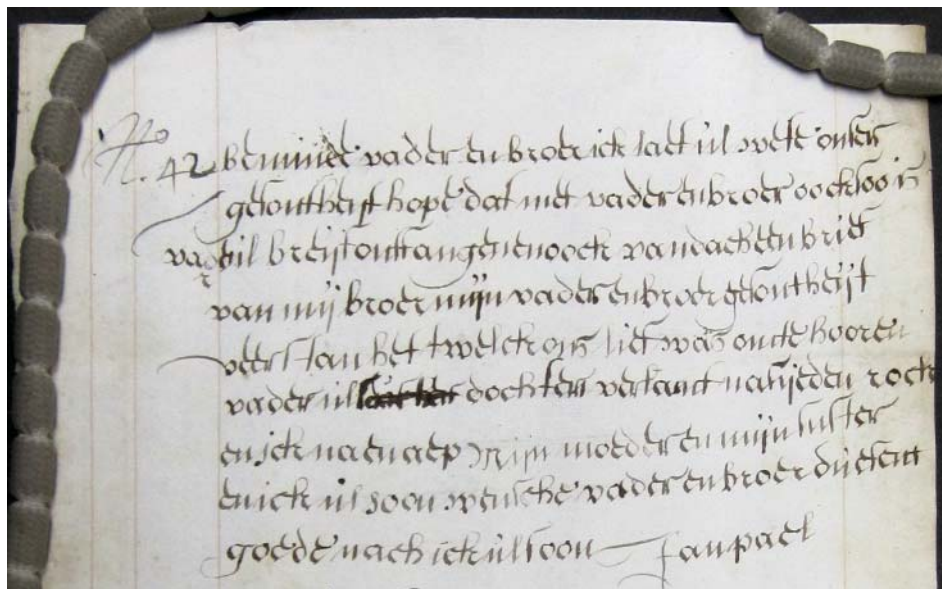 No. 42 beminde vader en broer ick laet ul wete onsen
gesontheijt hope dat met vader en broer oock soo is
vader ul breijf ontfangen en oock van dach een brief
van mij broer mijn vader en broer gesontheijt
veerstan het twelck ons lief was om te hooren
vader ul dochter verlanct na sijeden rock
en ick na en aep Mijn moeder en mijn suster
en ick ul soon wensche vader en broer duesent
goede nach ick ul soon Jan pael